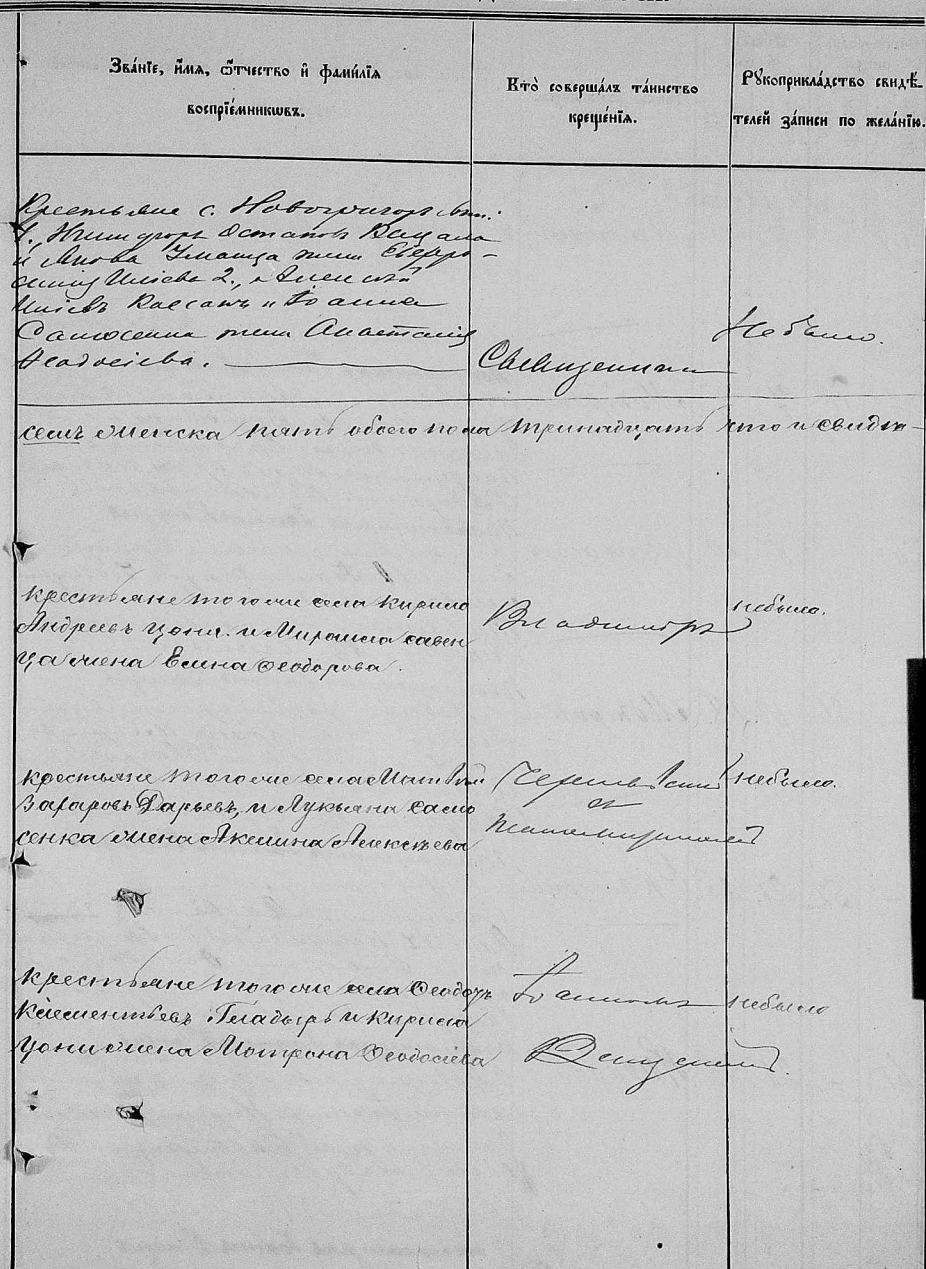 Зва́нїе, и҆́мѧ, ѻ҆́тчество и҆ фами́лїѧ
воспрїе́мникѡвъ.
Кто̀ соверша́лъ та́инство
креще́нїѧ.
Рꙋкоприкла́дство свидѣ́-
телей за́писи по жела́нїю.
Крестьяне с.
1., Никифоръ Остаповъ
и Якова жена Евфро-
синія Ильева 2., Алексѣй
Ильевъ и Іоанна
Самосенка жена Анастасія
Ѳеодосіева.
Священникъ
Небыло.
семь женска пять обоего пола тринадцать что и свидѣ-
крестьяне тогоже села Кирило
Андреевъ Цони. и Мирона савен
ца жена Елена Ѳеодорова.
Владиміръ
небыло.
крестьяне тогоже села Матвѣй
Захаровъ Дарьевъ, и Лукьяна само
сенка жена Акелина Алексѣева
небыло.
крестьяне тогоже села Ѳеодоръ
Клементьевъ Гладырь и Кирила
Цони жена Мотрона Ѳеодосіева
небыло